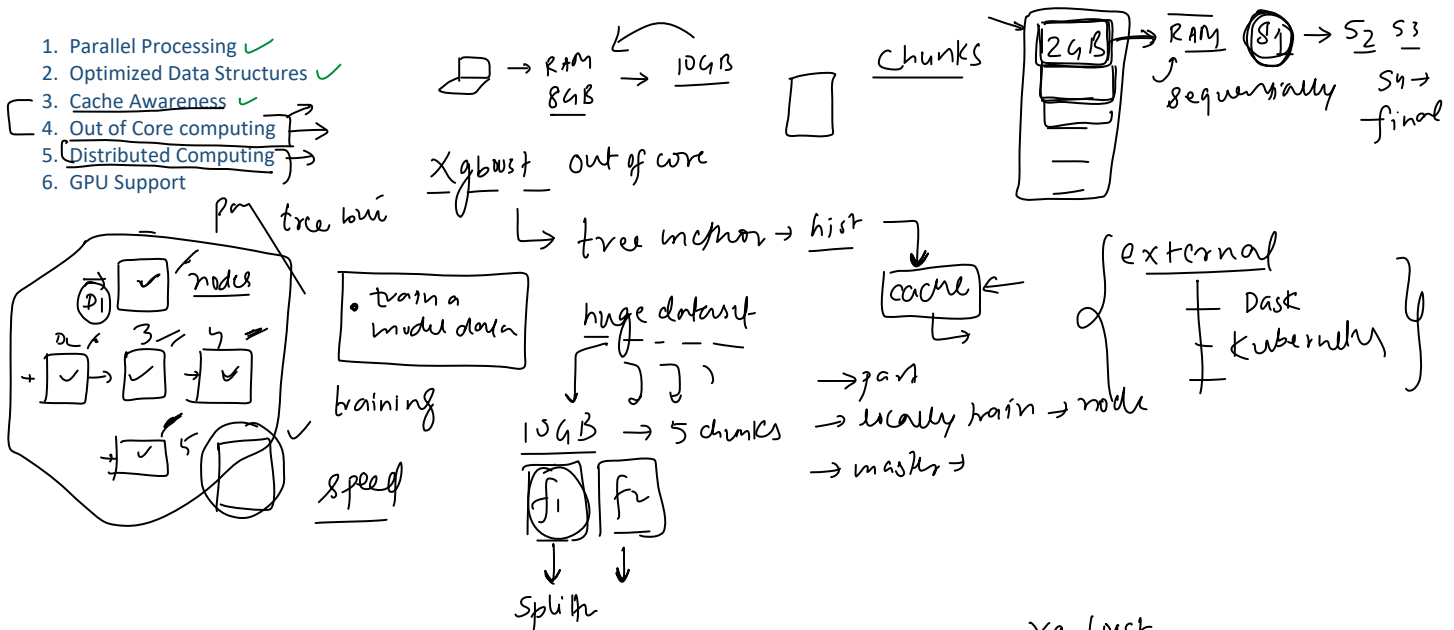 1. Parallel Processing ✓
2. Optimized Data Structures ✓
3. Cache Awareness ✓
4. Out of Core computing
5. Distributed Computing
6. GPU Support
→ RAM → 10GB
8GB
Chunks
2GB → RAM S1 → S2 S3
sequentially S4 →
final
Xgboost out of core
→ tree method → hist
cache
external
Dask
Kubernetes
tree
D1 nodes
3 4
5
• train a
model data
training
speed
huge dataset
10GB → 5 chunks
f1 f2
→ part
→ locally train → node
→ master →